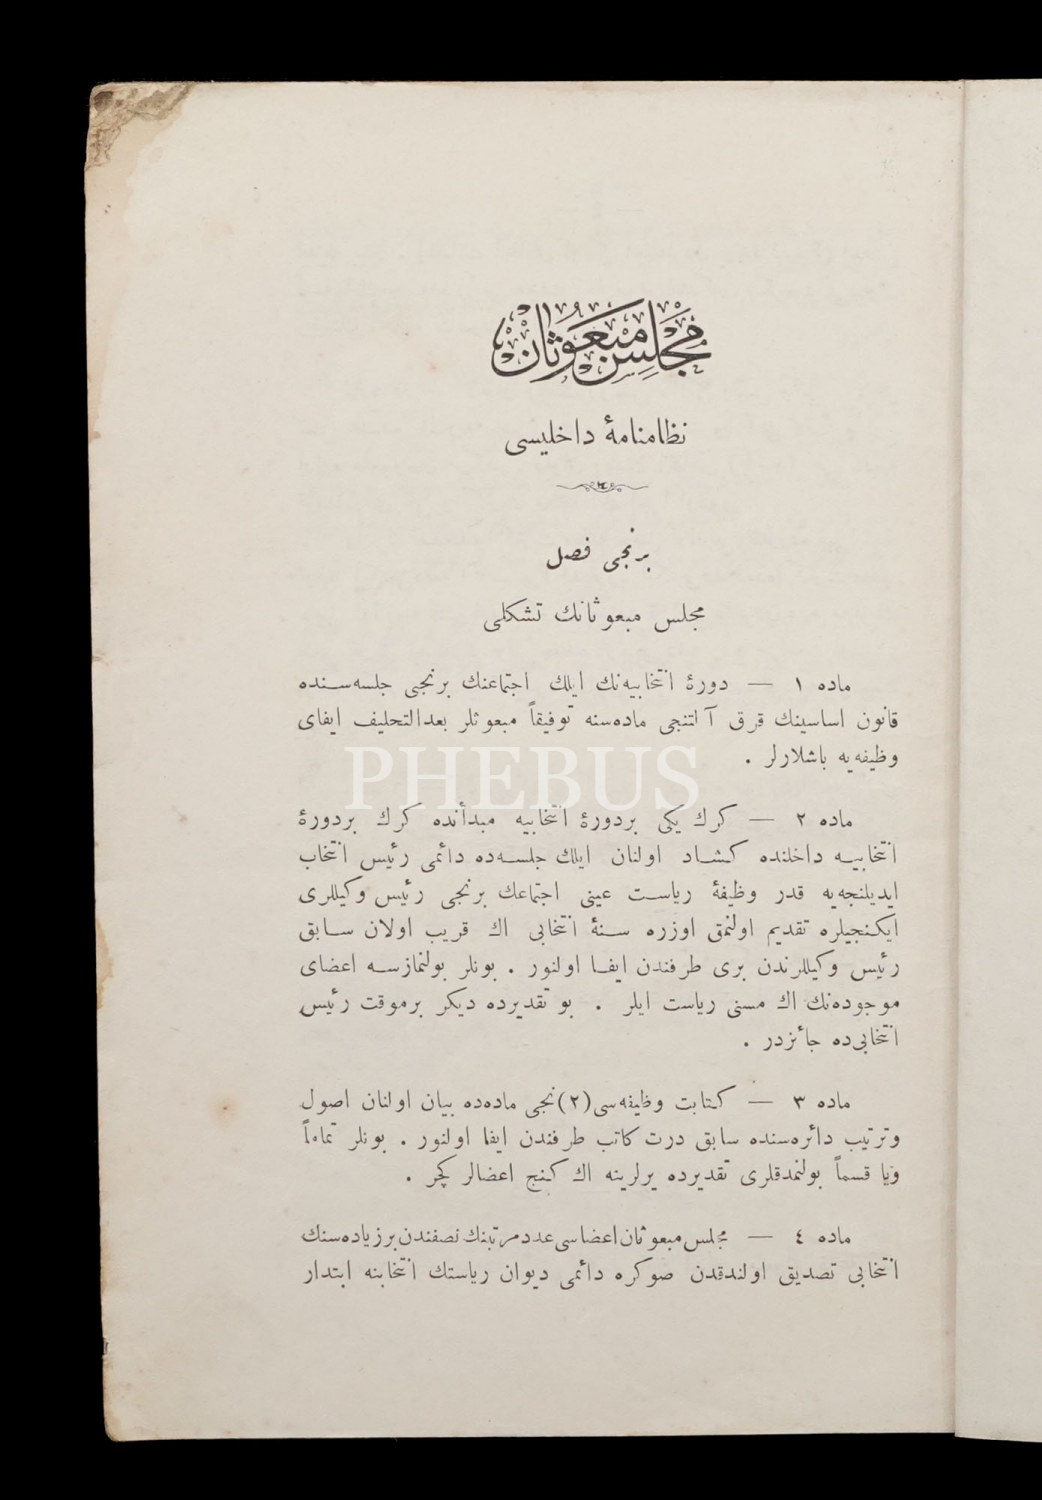 مجلس مبعوثان
نظامنامهٔ داخلیسی
برنجی فصل
مجلس مبعوثانك تشكلی
ماده ١ — دورهٔ انتخابیه‌نك ایلك اجتماعنك برنجی جلسه‌سنده
قانون اساسینك قرق آلتنجی ماده‌سنه توفیقاً مبعوثلر بعدالتحلیف ایفای
وظیفه‌یه باشلارلر .
PHEBUS
ماده ٢ — كرك یكی بردورهٔ انتخابیه مبدأنده كرك بردورهٔ
انتخابیه داخلنده كشاد اولنان ایلك جلسه‌ده دائمی رئیس انتخاب
ایدیلنجه‌یه قدر وظیفهٔ ریاست عینی اجتماعك برنجی رئیس وكیللری
ایكنجیلره تقدیم اولنمق اوزره سنهٔ انتخابی اك قریب اولان سابق
رئیس وكیللرندن بری طرفندن ایفا اولنور . بونلر بولنمازسه اعضای
موجوده‌نك اك مسنی ریاست ایلر . بو تقدیرده دیكر برموقت رئیس
انتخابی‌ده جائزدر .
ماده ٣ — كتابت وظیفه‌سی (٢)نجی ماده‌ده بیان اولنان اصول
وترتیب دائره‌سنده سابق درت كاتب طرفندن ایفا اولنور . بونلر تماماً
ویا قسماً بولنمدقلری تقدیرده یرلرینه اك كنج اعضالر كچر .
ماده ٤ — مجلس مبعوثان اعضاسی عدد مرتبنك نصفندن برزیاده‌سنك
انتخابی تصدیق اولندقدن صوكره دائمی دیوان ریاستك انتخابنه ابتدار